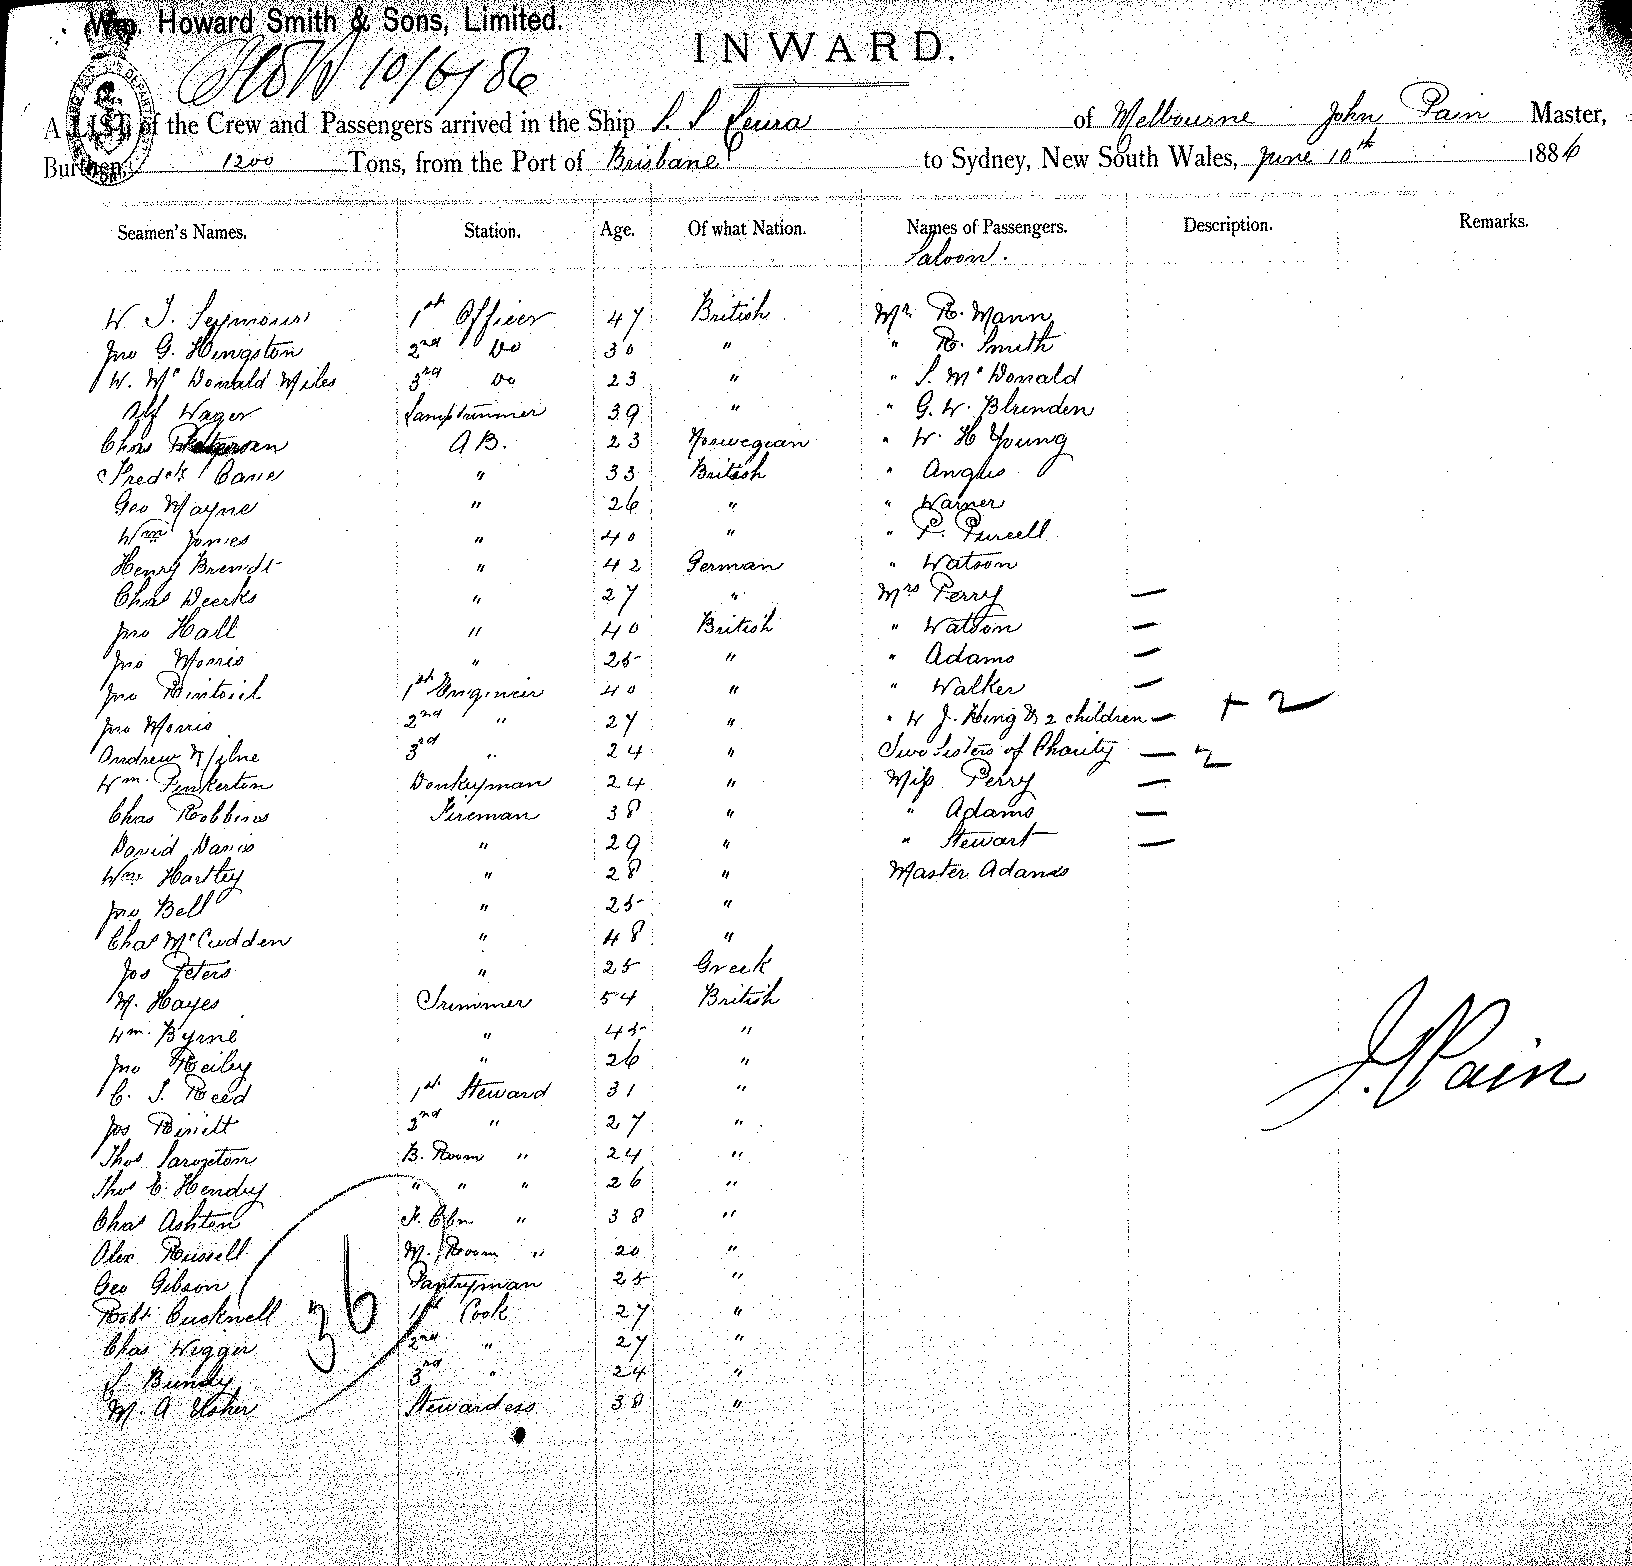 Wm. Howard Smith & Sons, Limited.
INWARD.
10/6/86
A LIST of the Crew and Passengers arrived in the Ship S. S. Leura of Melbourne John Pain Master,
Burthen, 1200 Tons, from the Port of Brisbane to Sydney, New South Wales, June 10th 1886
Seamen's Names. Station. Age. Of what Nation. Names of Passengers. Description. Remarks.
Saloon.
W. J. Seymour 1st Officer 47 British Mr R. Mann
Jno G. Hingston 2nd Do 30 " " R. Smith
W. McDonald Miles 3rd Do 23 " " S. McDonald
Alf Wager Lamptrimmer 39 " " G. W. Blunden
Chas Petersen A.B. 23 Norwegian " W. H Young
Fredck Cane " 33 British " Angus
Geo Mayne " 26 " " Warner
Wm Jones " 40 " " P. Purcell
Henry Brendt " 42 German " Watson
Chas Deerks " 27 " Mrs Perry —
Jno Hall " 40 British " Watson —
Jno Morris " 25 " " Adams —
Jno 1st Engineer 40 " " Walker —
Jno Morris 2nd " 27 " " W J. King & 2 children — + 2
Andrew Milne 3rd " 24 " Two Sisters of Charity — 2
Wm. Pinkerton Donkeyman 24 " Miss Perry —
Chas Robbins Fireman 38 " " Adams —
David Davis " 29 " " Stewart —
Wm Hartley " 28 " Master Adams
Jno Bell " 25 "
Chas McCudden " 48 "
Jos Peters " 25 Greek
M. Hayes Trimmer 54 British
Wm. Byrne " 45 "
Jno Reiley " 26 "
C. J. Reed 1st Steward 31 "
Jos 2nd " 27 "
Thos B. Room " 24 "
Thos C. Hendry " " " 26 "
Chas Ashton F. Cbn " 38 "
Alex Russell M. Room " 20 "
Geo Gibson Pantryman 25 "
Robt Cucknell 1st Cook 27 "
Chas Wigger 2nd " 27 "
S Bundy 3rd " 24 "
M. A Usher Stewardess 38 "
36
J. Pain